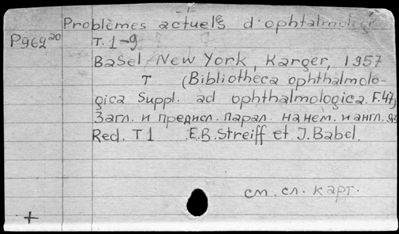 Problèmes actuels d'ophtalmologi
P962²⁰ T. 1-9
Basel, New York, Karger, 1957
T (Bibliotheca ophthalmolo-
gica Suppl. ad ophthalmologica. F.47)
Загл. и предисл. парал. на нем. и англ. яз
Red. T 1 E.B. Streiff et J. Babel.
см. сл. карт.
+